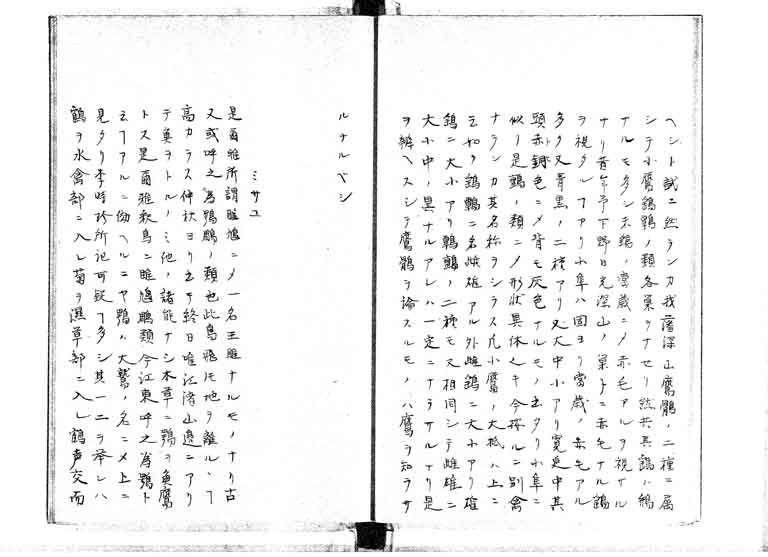 ヘント試ニ然ランカ我藩深山鷹鶻ノ二種ニ属
シテ小鷹鷂ノ類各巣ヲナセリ然共其鷂ハ鵊
ナルモ多シ天鷂ノ當歳ニメ赤毛アルヲ視ザル
ナリ昔年予下野日光深山ノ巣下ニ赤毛ナル鷂
ヲ視タルコアリ小隼ハ固ヨリ當歳ノ赤毛アル
多ク又青黒ノ二種アリ又大中小アリ寛延中其
頭赤銅色ニメ背モ灰色ナルモノ出タリ小隼ニ
似リ是鷂ノ類ニノ形状具体ヘキ今按ルニ別禽
ナランカ其名称ヲシラス凢小鷹ノ大抵ハ上ニ
云如ク鷂ニ名雌雄アル外雌鷂ニ大小アリ雄
鷂ニ大小アリ二種モ又相同シテ雌雄ニ
大小中ノ異ナルアレハ一定ニナラサルナリ是
ヲ辨ヘスシテ鷹鶻ヲ論スルモノハ鷹ヲ知ラサ
ルナルベシ
ミサユ
是爾雅所謂雎鳩ニメ一名王雎ナルモノナリ古
又或呼之為鶚鵰ノ類也此鳥飛トモ地ヲ離ルヽコ
高カラス仲秋ヨリ出テ終日唯江渚山邊ニアリ
テ魚ヲトルノミ他ノ諸能ナシ本草ニ鶚ヲ魚鷹
トス是爾雅釈鳥ニ雎鳩鵰類今江東呼之為鶚ト
云コアルニ倣ヘルニヤ鶚ハ大鷲ノ名ニメ上ニ
見タリ李時珍所記可疑コ多シ其一二ヲ挙レハ
鶴ヲ水禽部ニ入レ菊ヲ濕草部ニ入レ鶴声交而